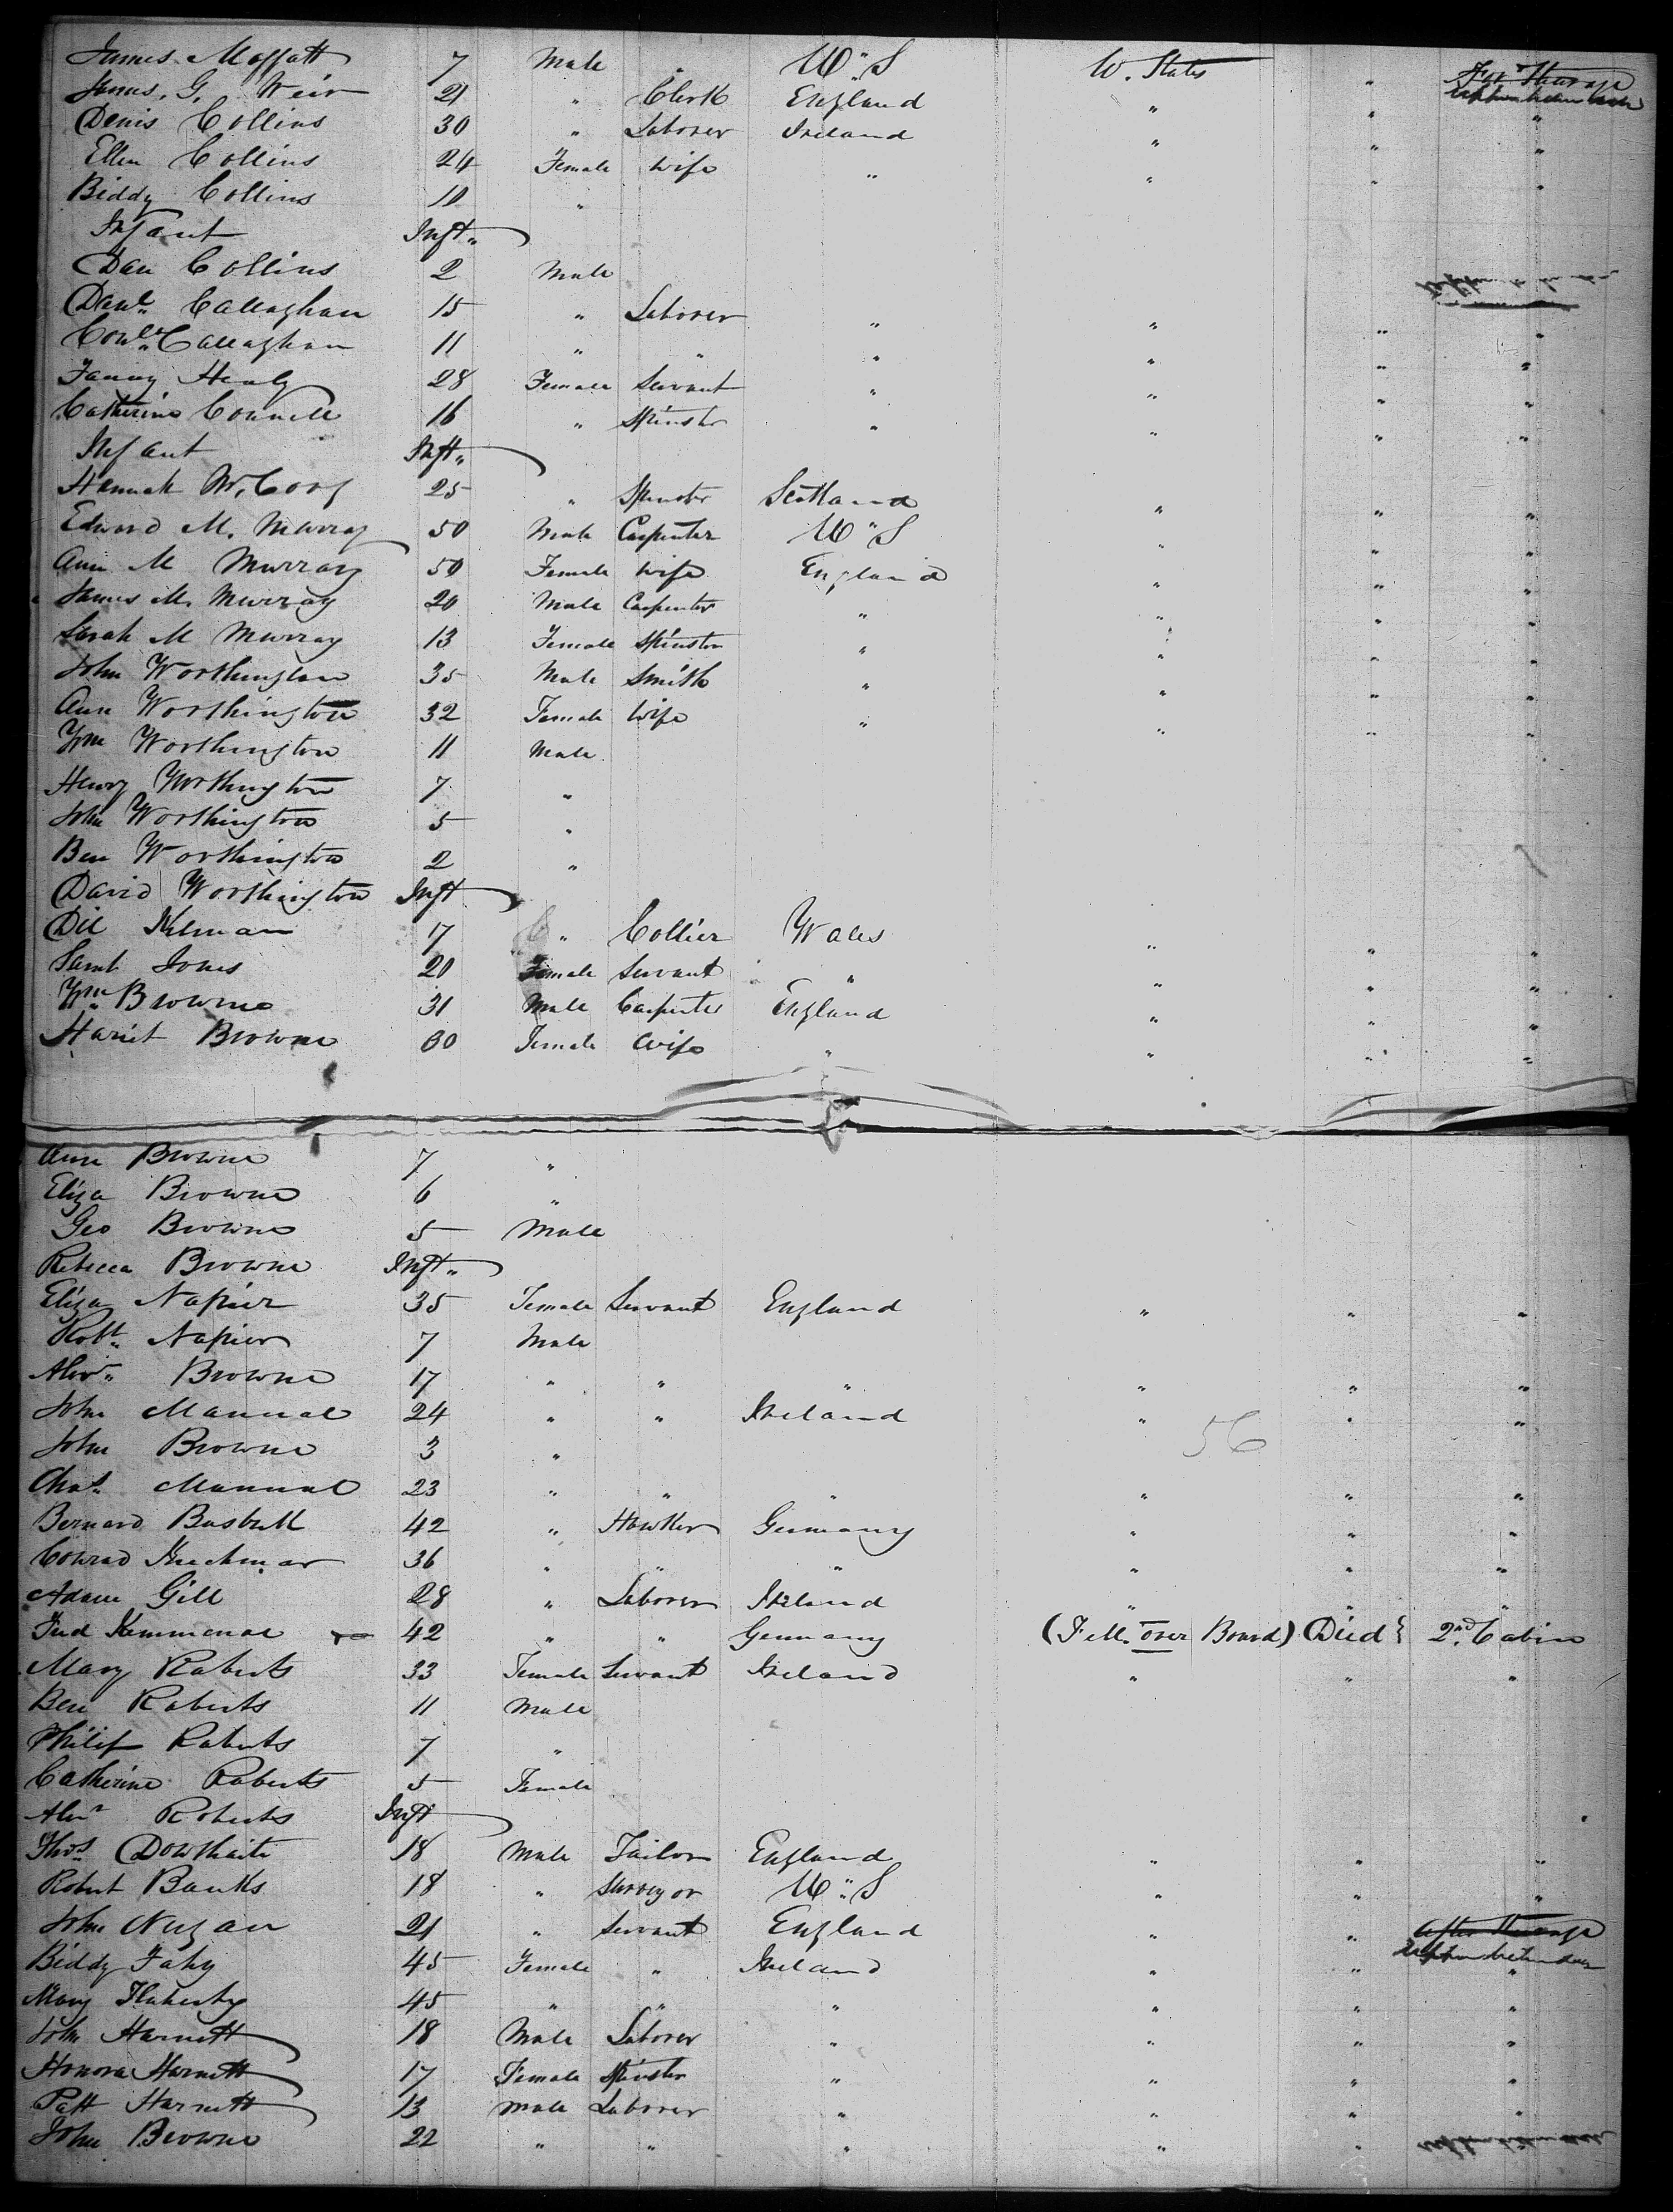 James Moffatt 7 Male " U" S U. States "
James. G. Weir 21 " Clerk England " " "
Denis Collins 30 " Laborer Ireland " " "
Ellen Collins 24 Female Wife " " " "
Biddy Collins 10 "
Infant Inft"
Dan Collins 2 Male
Danl" Callaghan 15 " Laborer " " " "
Callaghan 11 " " " " " "
Fanny Healy 28 Female Servant " " " "
Catherine Connell 16 " Spinster " " " "
Infant Inft"
Hannah 25 " Spinster Scotland " " "
Edward M. Murray 50 Male Carpenter U" S " " "
Ann M Murray 50 Female Wife England " " "
James M. Murray 20 Male Carpenter " " " "
Sarah M Murray 13 Female Spinster " " " "
John Worthington 35 Male Smith " " " "
Ann Worthington 32 Female Wife " " " "
Wm Worthington 11 Male
Henry Worthington 7 "
John Worthington 5 "
Ben Worthington 2 "
David Worthington Inft
17 " Collier Wales " " "
Jones 20 Female Servant " " " "
Wm" Browne 31 Male Carpenter England " " "
Hariet Browne 30 Female Wife " " " "
Ann Browne 7 "
Eliza Browne 6 "
Geo Browne 5 Male
Rebecca Browne Inft"
Eliza Napier 35 Female Servant England " " "
Robt" Napier 7 Male
Browne 17 " " " " " "
John Manual 24 " " Ireland " " "
John Browne 3 " 56
Chas" Manual 23 " " " " " "
Bernard 42 " Hawker Germany " " "
Conrad 36 " " " " " "
Adam Gill 28 " Laborer Ireland " " "
42 " " Germany (Fell over Board) Died } 2nd Cabin
Mary Roberts 33 Female Servant Ireland " " "
Ben Roberts 11 Male
Philip Roberts 7 "
Catherine Roberts 5 Female
Alexr Roberts Inft
Thos" Dowthaite 18 Male Tailor England " " "
Robert Banks 18 " Surveyor U" S " " "
John 21 " Servant England " "
Biddy Fahy 45 Female " Ireland " " "
Mary Flaherty 45 " " " " " "
John Harnett 18 Male Laborer " " " "
Honora Harnett 17 Female Spinster " " " "
Patt Harnett 13 Male Laborer " " " "
John Browne 22 " " " " "